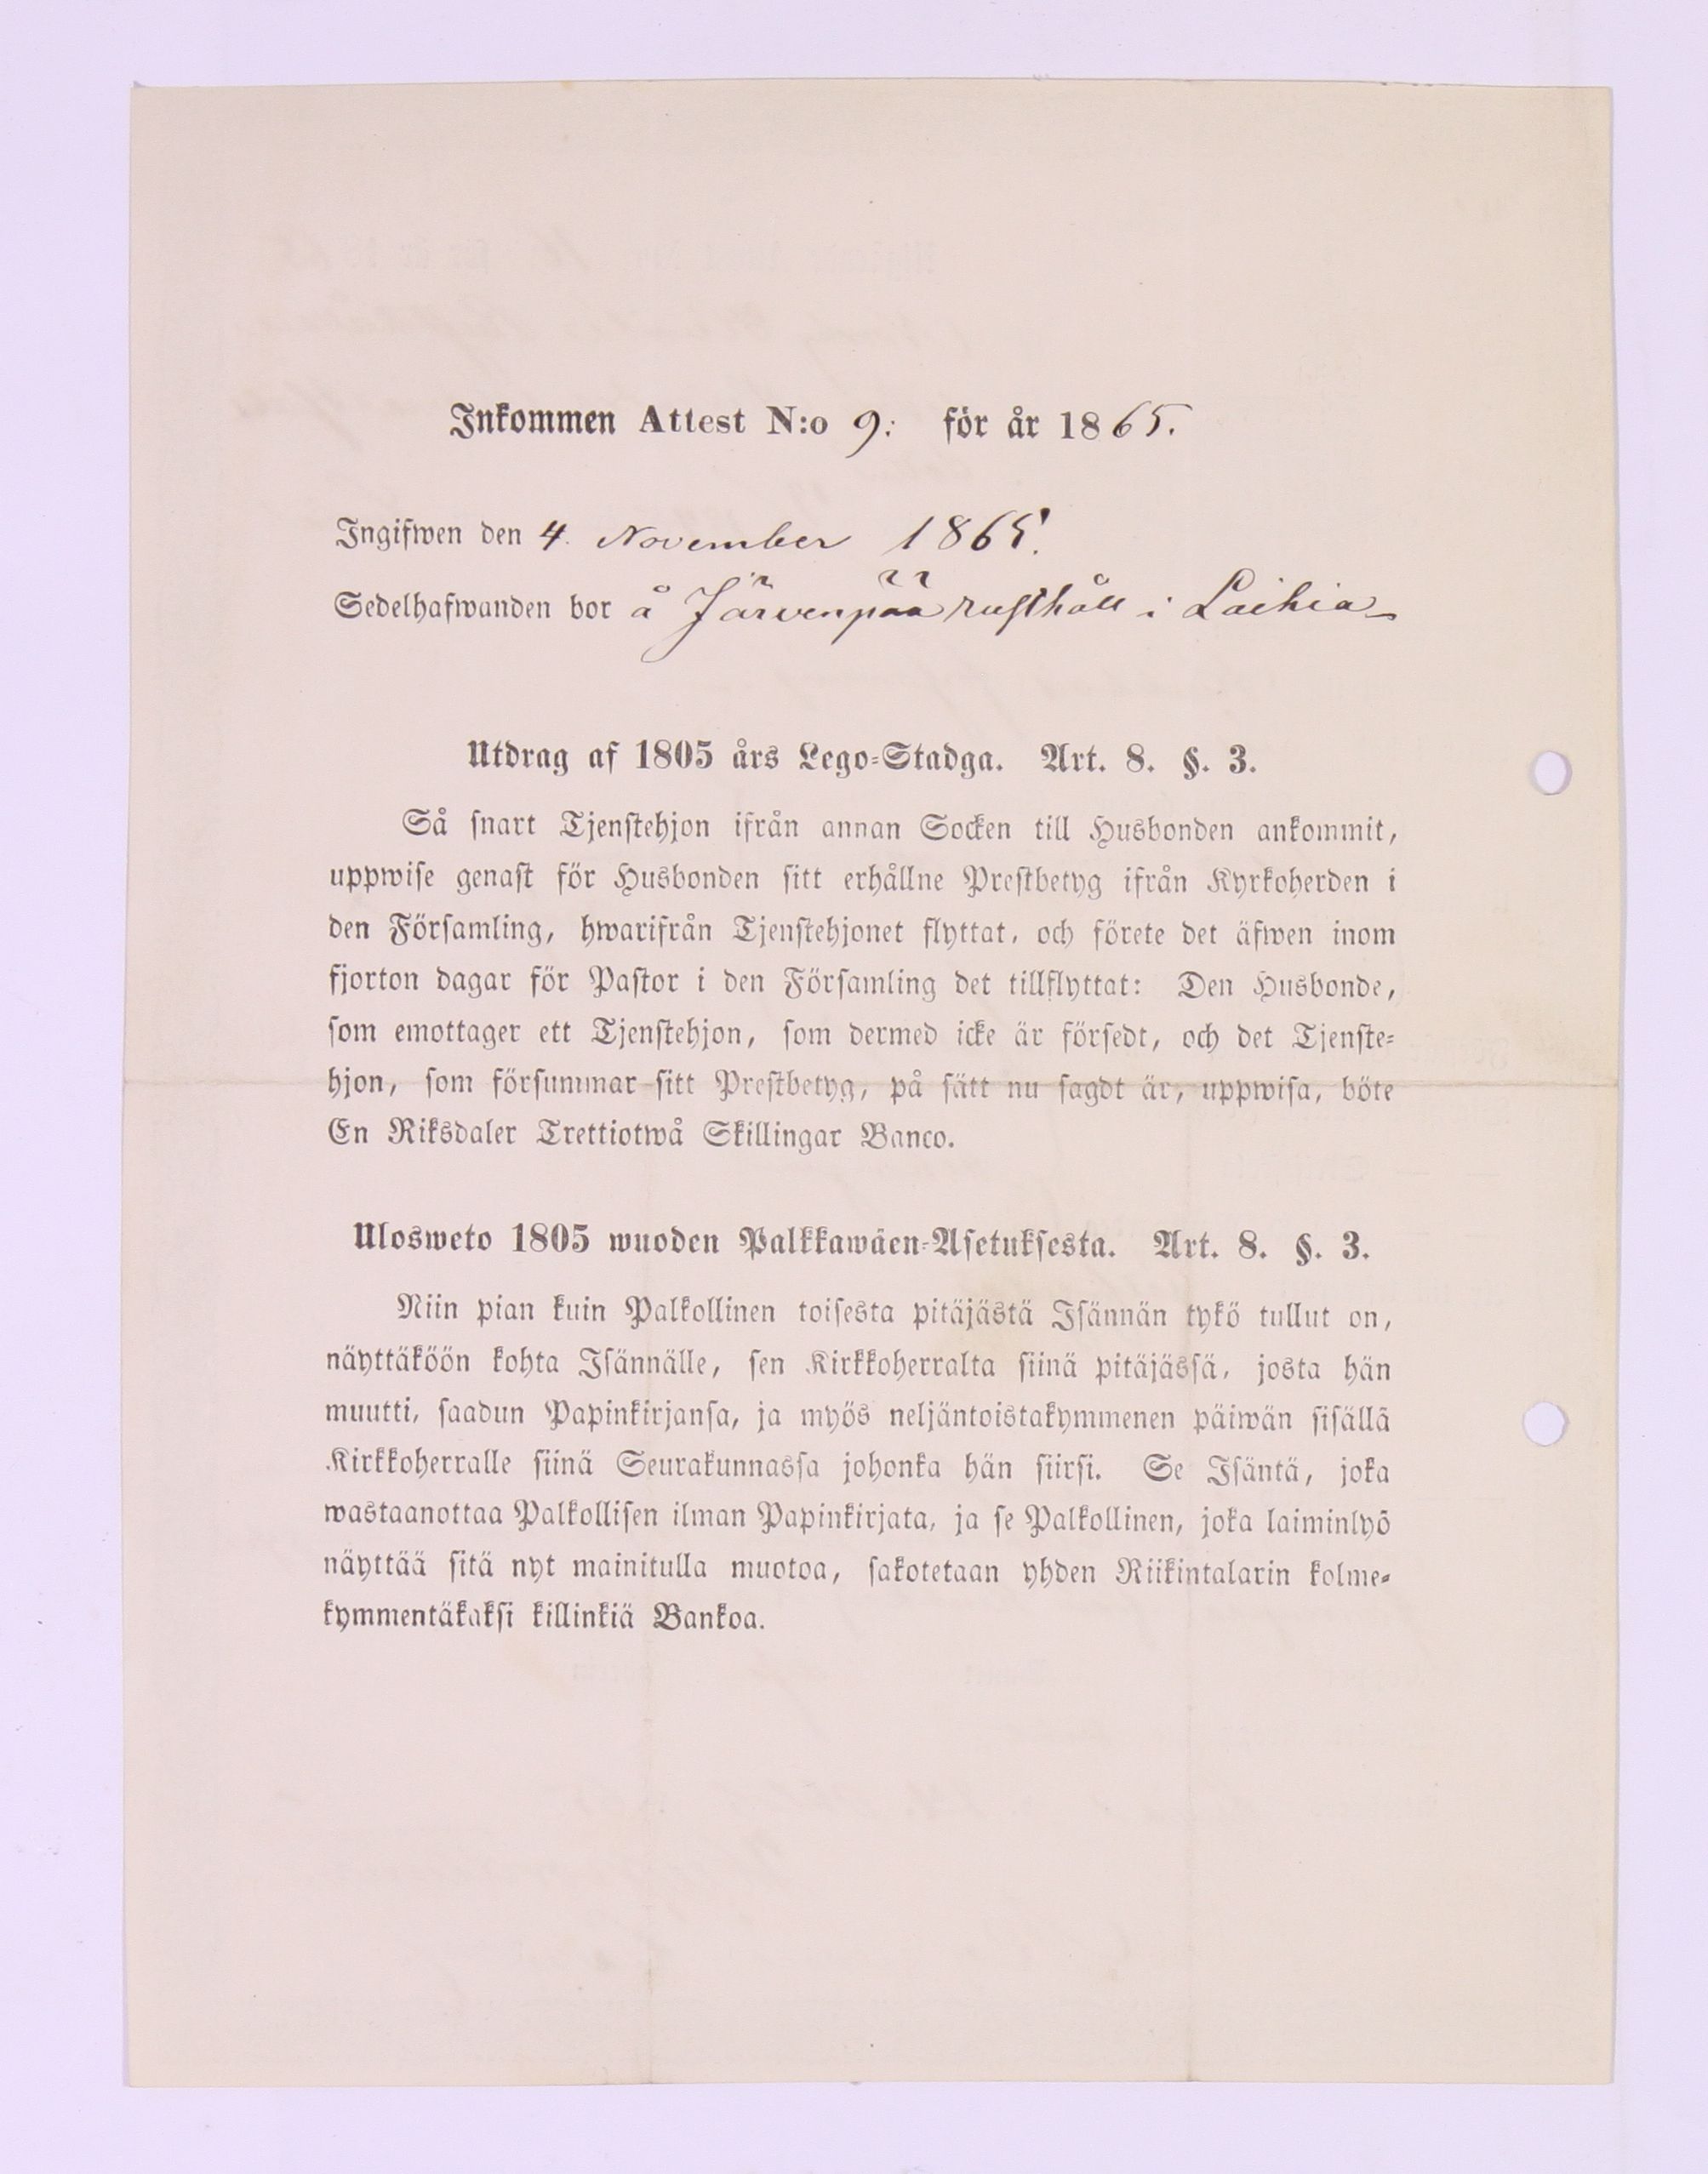 Inkommen Attest N:o 9: för år 1865.
Ingifwen den 4. November 1865.
Sedelhafwanden bor å Järvenpää rusthåll i Laihia
Utdrag af 1805 års Lego-Stadga. Art. 8. §. 3.
Så snart Tjenstehjon ifrån annan Socken till Husbonden ankommit,
uppwise genast för Husbonden sitt erhållne Prestbetyg ifrån Kyrkoherden i
den Församling, hwarifrån Tjenstehjonet flyttat, och förete det äfwen inom
fjorton dagar för Pastor i den Församling det tillflyttat: Den Husbonde,
som emottager ett Tjenstehjon, som dermed icke är försedt, och det Tjenste-
hjon, som försummar sitt Prestbetyg, på sätt nu sagdt är, uppwisa, böte
En Riksdaler Trettiotwå Skillingar Banco.
Ulosweto 1805 wuoden Palkkawäen-Asetuksesta. Art. 8. §. 3.
Niin pian kuin Palkollinen toisesta pitäjästä Isännän tykö tullut on,
näyttäköön kohta Isännälle, sen Kirkkoherralta siinä pitäjässä, josta hän
muutti, saadun Papinkirjansa, ja myös neljäntoistakymmenen päiwän sisällä
Kirkkoherralle siinä Seurakunnassa johonka hän siirsi. Se Isäntä, joka
wastaanottaa Palkollisen ilman Papinkirjata, ja se Palkollinen, joka laiminlyö
näyttää sitä nyt mainitulla muotoa, sakotetaan yhden Riikintalarin kolme-
kymmentäkaksi killinkiä Bankoa.